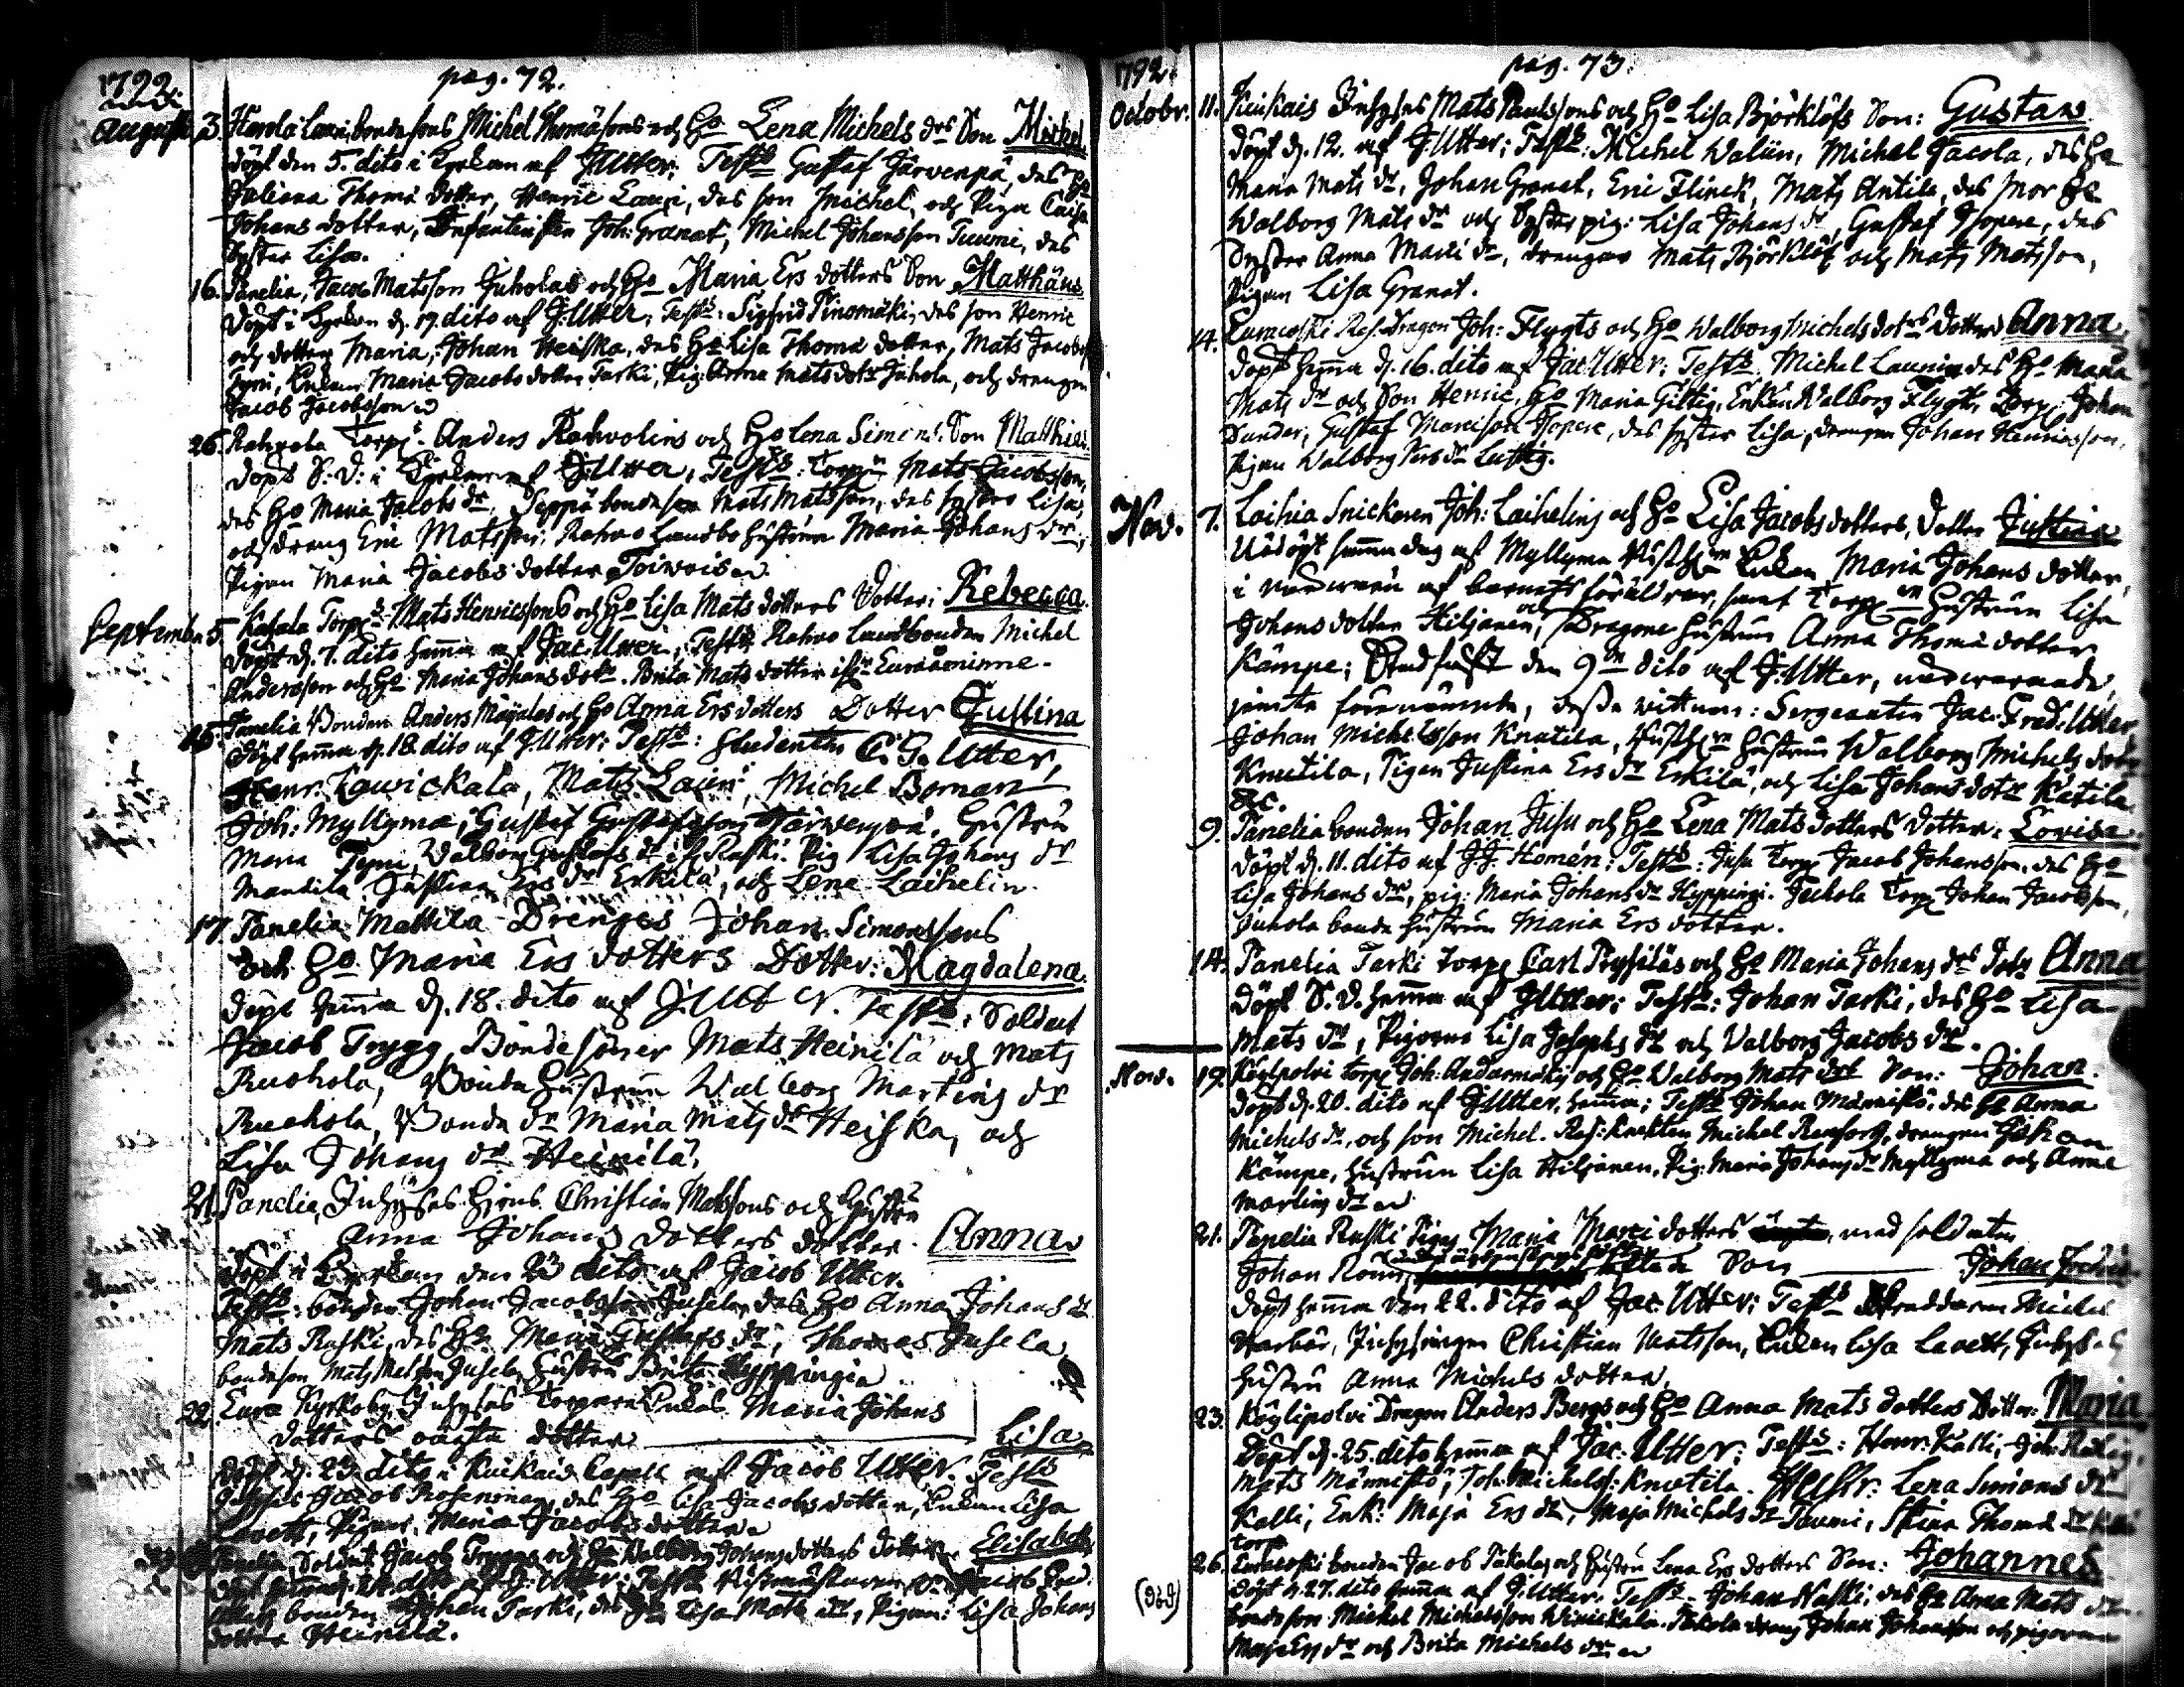 1792.
pag. 72.
August 3. bondesons Michel Thomäsons och Ho Lena Michels drs Son Michel
döpt den 5. dito i Kyrkan af J. Utter; Test: Gustaf Järvenpä, des Ho
Juliana Thomä dotter, Henric Lauri, des son Michel, och Pigan Caisa
Johans dotter, Infanteristen Joh: Granat, Michel Johansson Tuomi, des
Syster Lisa.
16. Panelia, Jacob Matsson Juholas och Ho Maria Ers dotters Son Matthäus
döpt i Kyrkan d. 19. dito af J. Utter, Test: Sigfrid Pinomäki, des son Henric
och dotter Maria, Johan Heiska, des Ho Lisa Thomä dotter, Mats Jacobs
Tyni, Enkan Maria Jacobs dotter Tarki, Pig: Anna Mats dotr Juhola, och drengen
Jacob Jacobsson
26. Rahvola Torp: Anders Rahvolins och Ho Lena Simons Son Matthias
döpt S. D. i Kyrkan af J. Utter, Test: Torp Mats Jacobsson,
des Ho Maria Jacobs dr, Seppä bondeson Mats Matsson, des syster Lisa,
och dreng Eric Matsson, Rahvo Landbo hustrun Maria Johans dr,
Pigan Maria Jacobs dotter Toivois
September 5. Torps Mats Henricssons och Ho Lisa Mats dotters Dotter: Rebecca.
döpt d. 7. dito hemma af Jac. Utter, Test: Rahvo Landbonden Michel
Andersson och Ho Maria Johans dotr. Brita Mats dotter
16. Panelia Bonden Anders Mäyälas och Ho Anna Ers dotters Dotter Justina
döpt hemma d. 18. dito af J. Utter; Test: Studenten C. G. Utter,
Henr. Lavickala, Mats Lauri, Michel Boman
Joh: Myllymä, Gustaf Gustafsson Järvenpä, Hustru
Maria Tyni, Walborg Gustafs dr Raski. Pig Lisa Johans dr
Mantila Justina Ers dr Erkilä, och Lena Laihelin.
17. Panelia Mattila Drenges Johan Simonssons
och Ho Maria Ers dotters Dotter: Magdalena.
döpt hemma d. 18. dito af J. Utter. Test: Soldat
Jacob Trygg, Bondesöner Mats Heinilä och Mats
Ruohola, Bonde hustrun Walborg Martins dr
Ruohola, Bonde dr Maria Mats dr Heiska, och
Lisa Johans dr Heinilä,
21. Panelia, Inhyses Hjons Christian Matssons och Hustru
Anna Johans dotters dotter. Anna
döpt i Kyrkan den 23 dito af Jacob Utter.
Test: bonden Johan Jacobsson Jusela, des Ho Anna Johans dr
Mats Raski, des Ho Maria Gustafs dr, Thomas Jusela
bondeson Mats Matsson Jusela, Hustru Brita Hyppingin
22. Eura Kyrkoby, Inhyses Torpare Enkas Maria Johans
dotters oägta dotter Lisa
döpt d. 23. dito i Kiukais Capell af Jacob Utter. Test
Jacob Rosenman, des Ho Lisa Jacobs dotter, Enkan Lisa
Lavett, Pigan Maria Jacobs dotter
Panelia, Soldat Jacob Tryggs och Ho Walborg Johans dotters dotter Elisabeth
döpt hemma dito af J. Utter: Test
bonden Johan Tarki, des Ho Lisa Mats dr, Pigan: Lisa Johans
dotter Heinilä.
1792.
pag. 73.
Octobr. 11. Kiukais Inhyses Mats Paulssons och Ho Lisa Björklöfs Son: Gustav
döpt d. 12. af J. Utter; Test: Michel Walin, Michel Jacola, des Ho
Maria Mats dr, Johan Granat, Eric Flinck, Mats Antila, des Mor Ho
Walborg Mats dr och Syster pig: Lisa Johans dr, Gustaf Isopere, des
Syster Anna Marci dr, drengar Mats Björklöf och Mats Matsson,
Pigan Lisa Granat.
14. Euracoski Res. Dragon Joh: Flygts och Ho Walborg Michels dotrs Dotter Anna,
döpt hemma d. 16. dito af Jac. Utter; Test: Michel Launin des Ho Maria
Mats dr och Son Henric, Ho Maria Giltig, Enkan Walborg Flygt, Torp: Johan
Sunder, Gustaf Marcisson Isopere, des syster Lisa, drengen Johan Henricsson,
Pigan Walborg Ers dr Lustig.
Nov. 7. Laihia Snickaren Joh: Laihelins och Ho Lisa Jacobs dotters, Dotter Justina
Nödöpt samma dag af Myllymä Enkan Maria Johans dotter,
i närvaro af barnets föräldrar, samt Torp Hustrun Lisa
Johans dotter Hiljanen, och Dragone Hustrun Anna Thomä dotter
Kämpe; Stadfäst den 9 dito af J. Utter, närvarande,
jemte förenämnde, desse vittnen: Sergeanten Jac. Fred. Utter,
Johan Michelsson Knutila, Hustrun Walborg Michels dotr
Knutila, Pigan Justina Ers dr Erkilä, och Lisa Johans dotr Kätilä
&c.
9. Panelia bonden Johan Jusu och Ho Lena Mats dotters dotter. Lovisa
döpt d. 11. dito af J. Homén; Test: Jusu Torp: Jacob Johansson, des Ho
Lisa Johans dr, pig: Maria Johans dr Hyppingi. Jeckola Torp Johan Jacobsson,
Juhola bonde hustrun Maria Ers dotter.
14. Panelia Tarki Torp: Carl Prysiläs och Ho Maria Johans drs Dotr Anna
döpt S. D. hemma af J. Utter; Test: Johan Tarki, des Ho Lisa
Mats dr, Pigorna Lisa Josephs dr och Walborg Jacobs dr.
Nov. 19. Köylpolvi Torp: Joh: Andersmäkis och Ho Walborg Mats drs Son: Johan.
döpt d. 20. dito af J. Utter, hemma; Test: Johan Männistö, des Ho Anna
Michels dr, och son Michel. Res: Karlen Michel Renfors, drengen Johan
Kämpe, hustrun Lisa Hiljanen, Pig: Maria Johans dr Myllymä och Anna
Martins dr
21. Panelia Raski Pigas Maria Marci dotters med soldaten
Johan Rom, Son Johan
döpt hemma den 22. dito af Jac. Utter; Test: Skräddaren Michel
Inhysingen Christian Matsson, Enkan Lisa Lavett, Inhyses
hustru Anna Michels dotter,
23. Köylipolvi Dragon Anders Bergs och Ho Anna Mats dotters Dotter: Maria
döpt d. 25. dito hemma af Jac. Utter; Test: Henr. Kalli, Joh:
Mats Männistö, Joh: Michels: Knutila. Hustr: Lena Simons dr
Kalli, Enk: Maja Ers dr, Maja Michels dr Tuomi, Stina Thomä dr Kalli
26. Euracoski bonden Jacob Päkolas och Hustru Lena Ers dotters Son: Johannes
döpt d. 27. dito hemma af J. Utter. Test: Johan Naski, des Ho Anna Mats dr
bondeson Michel Michelsson Winickala. Päkola dreng Johan Johansson och pigorna
Maja Ers dr och Brita Michels dr